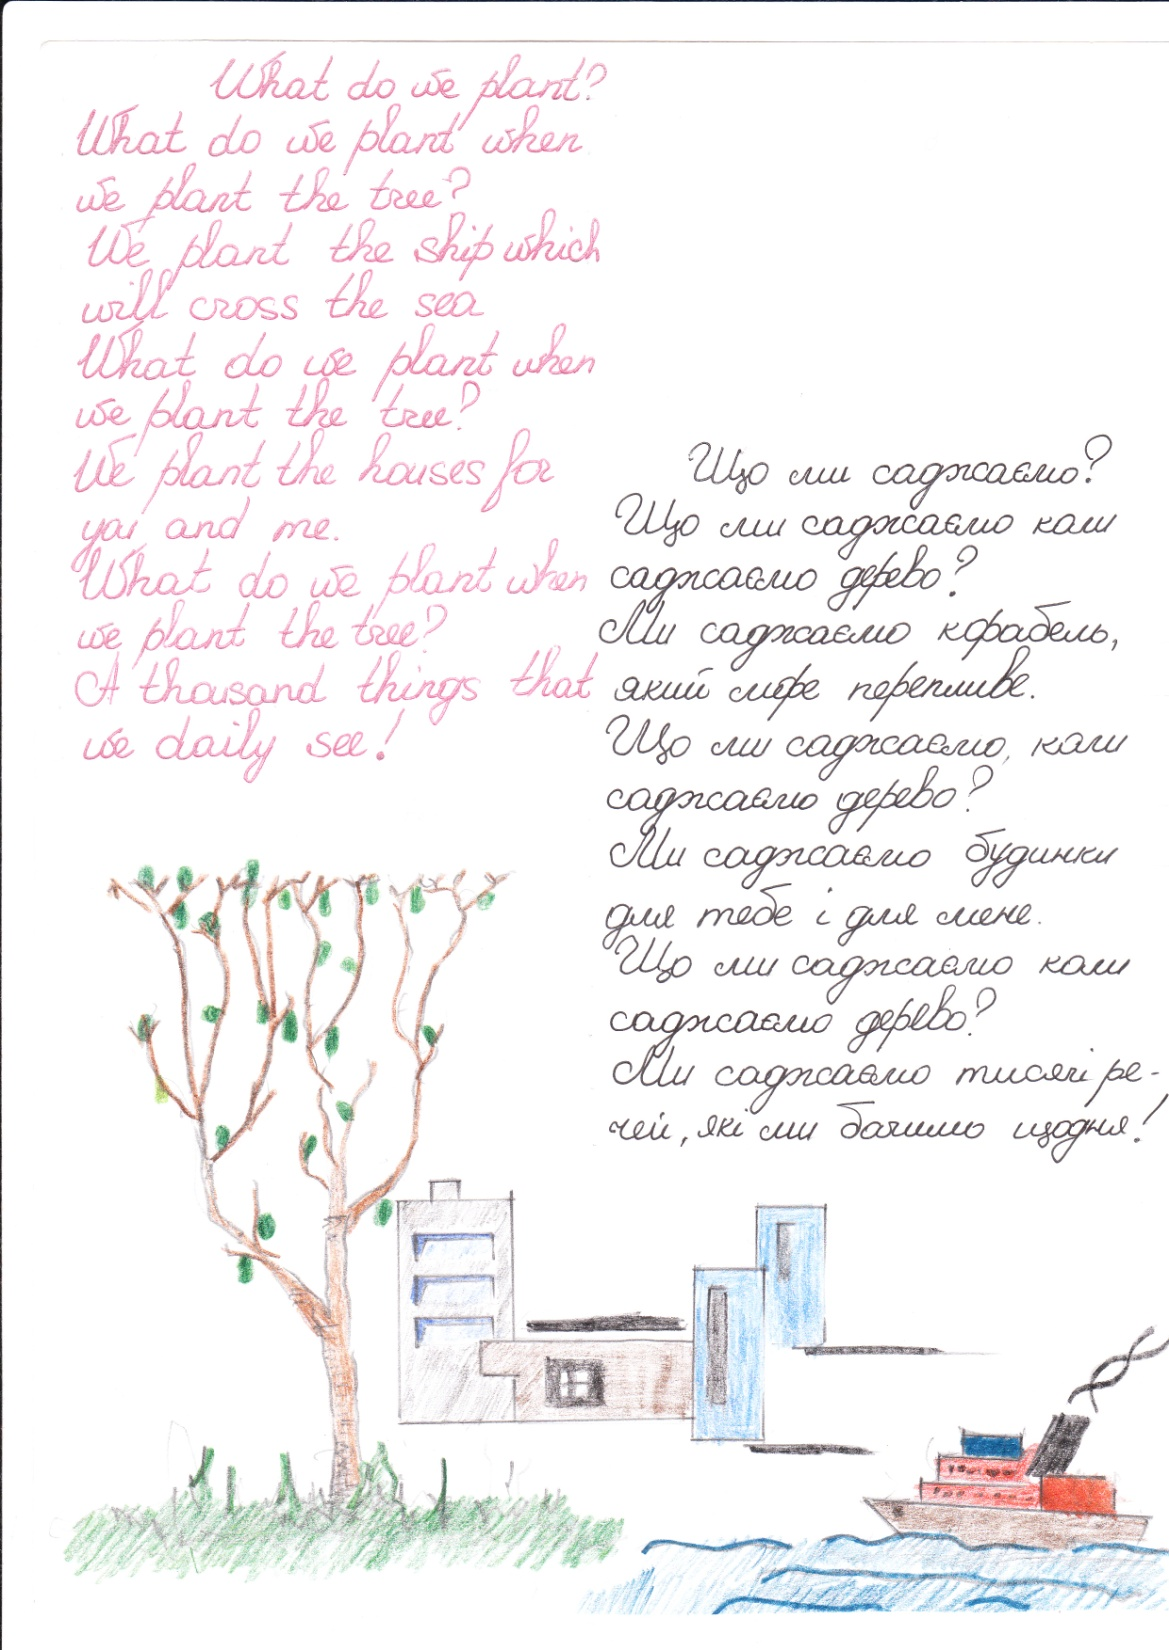 What do we plant?
What do we plant when
we plant the tree?
We plant the ship which
will cross the sea
What do we plant when
we plant the tree?
We plant the houses for
you and me.
What do we plant when
we plant the tree?
A thousand things that
we daily see!
Що ми саджаємо?
Що ми саджаємо коли
саджаємо дерево?
Ми саджаємо корабель,
який море перепливе.
Що ми саджаємо, коли
саджаємо дерево?
Ми саджаємо будинки
для тебе і для мене.
Що ми саджаємо коли
саджаємо дерево?
Ми саджаємо тисячі ре-
чей, які ми бачимо щодня!